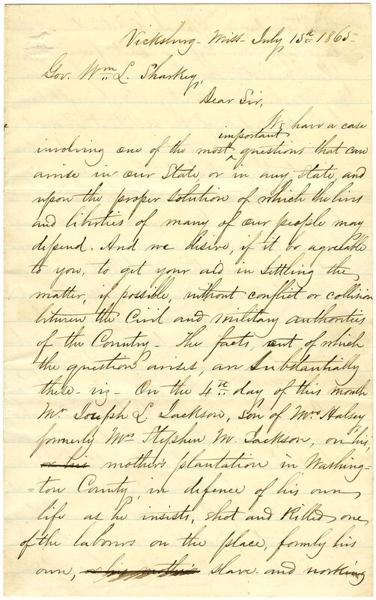 Vicksburg Miss July 15th 1865
Gov. Wm L. Sharkey,
Dear Sir,
We have a case
involving one of the most important questions that can
arise in our State, or in any State, and
upon the proper solution of which the lives
and liberties of many of our people may
depend. And we desire, if it be agreeable
to you, to get your aid in settling the
matter, if possible, without conflict or collision
between the civil and military authorities
of the Country. The facts out of which
the question arises, are substantially
these - viz - On the 4th day of this month
Mr Joseph L. Jackson, son of Mrs Halsey
formerly Mrs Stephen M. Jackson, on his,
mother's plantation in Washing-
ton County, in defence of his own
life as he insists, shot and killed one
of the laborers on the place, formerly his
own, slave and working